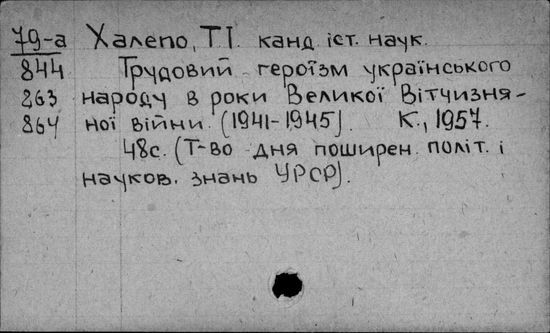 79-а Халепо, Т.І. канд. іст. наук.
844 Трудовий героїзм українського
863 народу в роки Великої Вітчизня-
864 ної війни. (1941-1945). К., 1957.
48с. (Т-во дня поширен. політ. і
науков. знань УРСР).